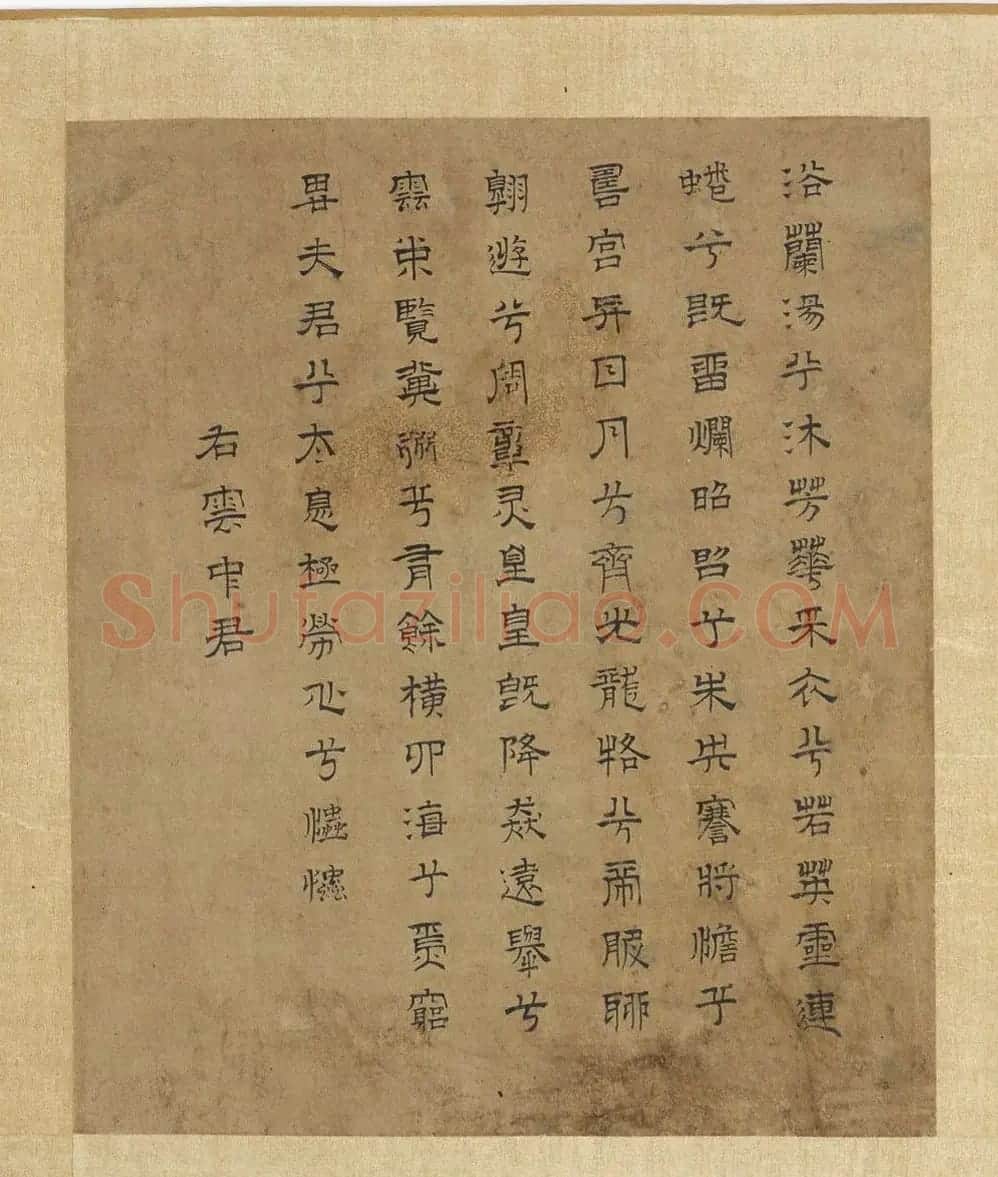 浴蘭湯兮沐芳華采衣兮若英靈連
蜷兮既留爛昭昭兮未央謇將憺兮
壽宮與日月兮齊光龍駕兮帝服聊
翱遊兮周章灵皇皇既降猋遠舉兮
雲中覽冀州兮有餘橫四海兮焉窮
思夫君兮太息極勞心兮忡忡
右雲中君
Shufaziliao.COM